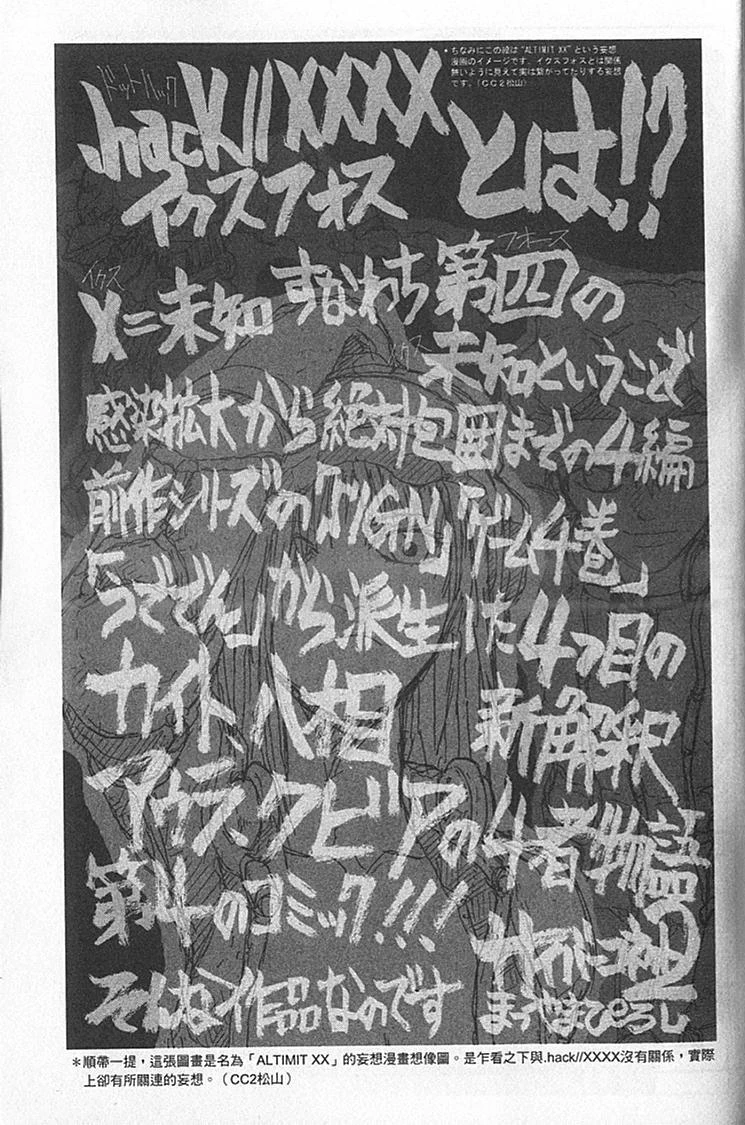 ・ちなみにこの絵は“ALTIMIT XX”という妄想
漫画のイメージです。イクスフォスとは関係
無いように見えて実は繋がってたりする妄想
です。(CC2松山)
ドットハック
.hack//XXXX
イクスフォス
とは!?
イクス
X=未知 すなわち 第四の
フォース
イクス
未知ということで
感染拡大から絶対包囲までの4編
前作シリーズの「SIGN」「ゲーム4巻」
「うででん」から派生した4つ目の
新解釈
カイト、八相
アウラ、クビアの4者物語
第4のコミック!!!
そんな作品なのです
サイバーコネクト2
まつやまぴろし
＊順帶一提，這張圖畫是名為「ALTIMIT XX」的妄想漫畫想像圖。是乍看之下與.hack//XXXX沒有關係，實際
上卻有所關連的妄想。（CC2松山）